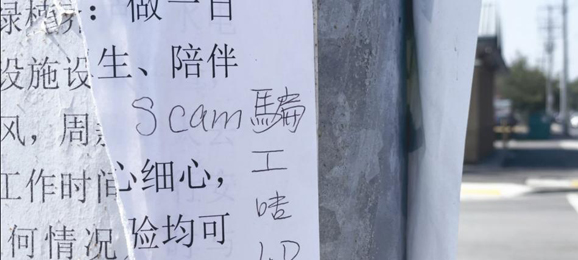 绿植 ：做一日
设施设 生、陪伴
Scam 騙
风，周
工
工作时间 心细心，
何情况 验均可